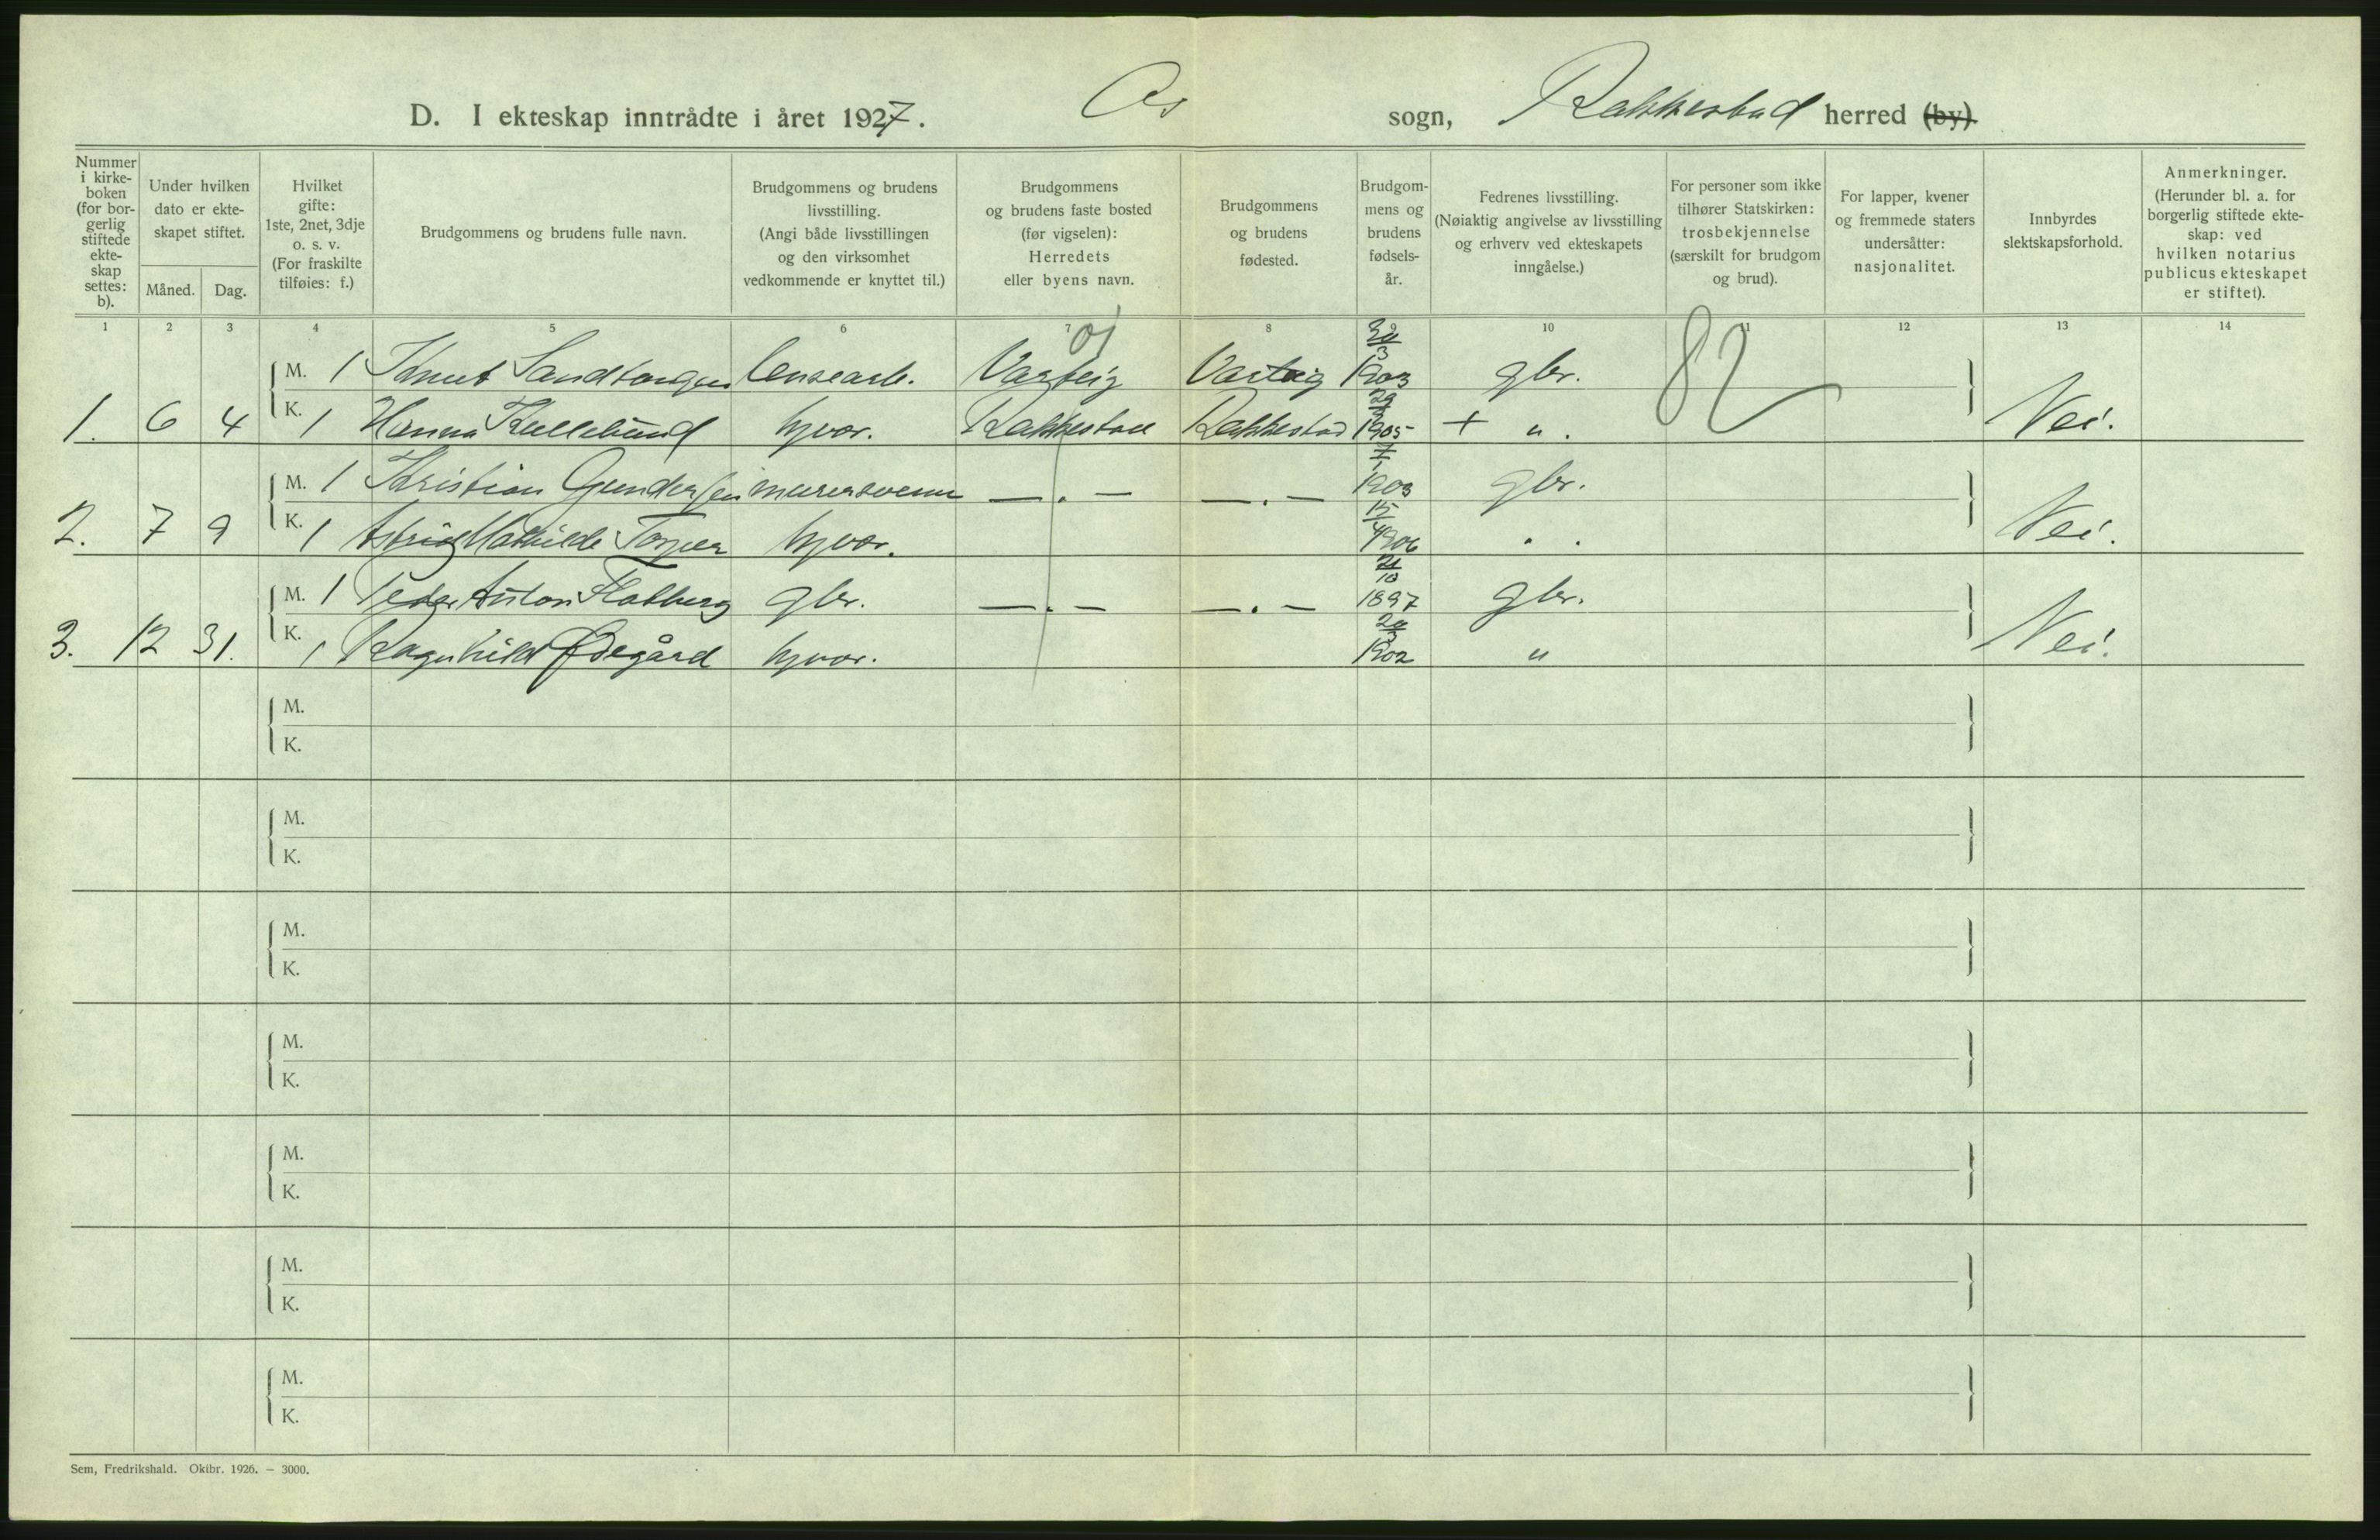 D. I ekteskap inntrådte i året 1927. Os sogn, Rakkestad herred (by)
Nummer i kirke-boken (for bor-gerlig stiftede ekte-skap settes: b).
Under hvilken dato er ekte-skapet stiftet.
Måned. Dag.
Hvilket gifte: 1ste, 2net, 3dje o. s. v. (For fraskilte tilføies: f.)
Brudgommens og brudens fulle navn.
Brudgommens og brudens livsstilling. (Angi både livsstillingen og den virksomhet vedkommende er knyttet til.)
Brudgommens og brudens faste bosted (før vigselen): Herredets eller byens navn.
Brudgommens og brudens fødested.
Brudgom-mens og brudens fødsels-år.
Fedrenes livsstilling. (Nøiaktig angivelse av livsstilling og erhverv ved ekteskapets inngåelse.)
For personer som ikke tilhører Statskirken: trosbekjennelse (særskilt for brudgom og brud).
For lapper, kvener og fremmede staters undersåtter: nasjonalitet.
Innbyrdes slektskapsforhold.
Anmerkninger. (Herunder bl. a. for borgerlig stiftede ekte-skap: ved hvilken notarius publicus ekteskapet er stiftet).
1 2 3 4 5 6 7 8 10 11 12 13 14
01 82
M. 1 Knut Sandtangen lensearb. Varteig Varteig 1903 gbr.
1. 6 4 K. 1 Hanna Kullebund hjvær. Rakkestad Rakkestad 29/3 1905 + " . Nei.
M. 1 Kristian Gundersen murersvenn — . — — . — 7/1 1903 gbr.
2. 7 9 K. 1 Astrid Mathilde hjvær. 15/4 1906 " . Nei.
M. 1 Peder Anton gbr. — . — — . — 21/10 1897 gbr.
3. 12 31. K. 1 Ragnhild Ødegård hjvær. 20/3 1902 " Nei.
M.
K.
M.
K.
M.
K.
M.
K.
M.
K.
M.
K.
M.
K.
Sem, Fredrikshald. Oktbr. 1926. – 3000.